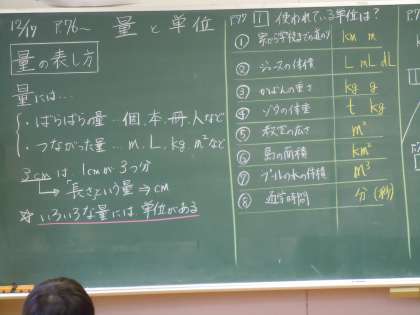 12/19 P.76〜 量と単位
量の表し方
量には…
・ばらばらの量…個、本、冊、人など
・つながった量…m、L、kg、m²など
3cmは、1cmが3つ分
「長さ」という量⇒cm
☆いろいろな量には、単位がある
P.77 1 使われている単位は？
① 家から学校までの道のり km m
② ジュースの体積 L mL dL
③ かばんの重さ kg g
④ ゾウの体重 t kg
⑤ 教室の広さ m²
⑥ 島の面積 km²
⑦ プールの水の体積 m³
⑧ 通学時間 分(秒)